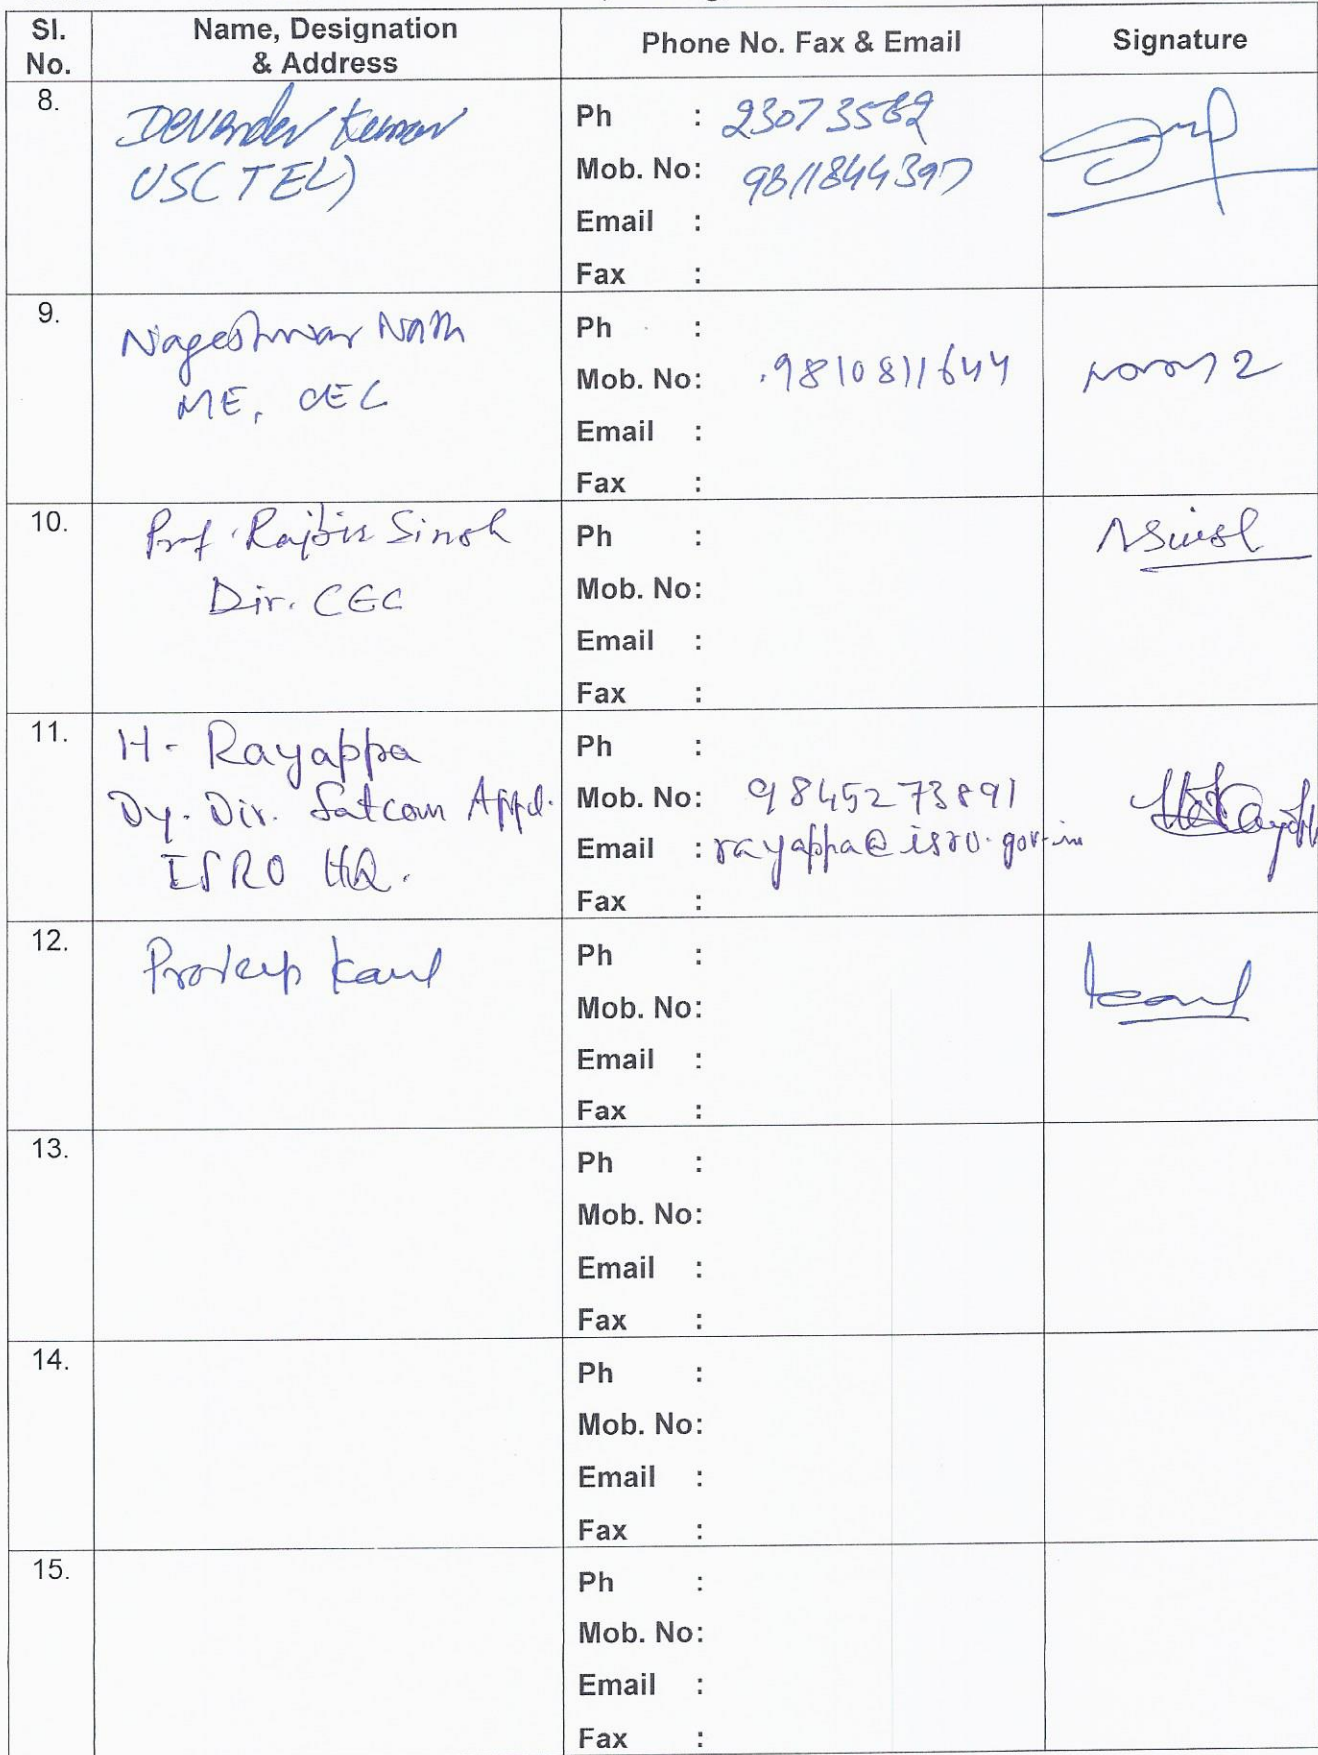 Sl. No.
Name, Designation & Address
Phone No. Fax & Email
Signature
8.
Devender Kumar
US(TEL)
Ph : 23073582
Mob. No: 9811844397
Email :
Fax :
9.
Nageshwar Nath
ME, CEC
Ph :
Mob. No: 9810811644
Email :
Fax :
10.
Prof. Rajbir Singh
Dir. CEC
Ph :
Mob. No:
Email :
Fax :
RSingh
11.
H. Rayappa
Dy. Dir. Satcom Appl.
ISRO HQ.
Ph :
Mob. No: 9845273891
Email : rayappa@isro.gov.in
Fax :
12.
Pradeep Kaul
Ph :
Mob. No:
Email :
Fax :
Kaul
13.
Ph :
Mob. No:
Email :
Fax :
14.
Ph :
Mob. No:
Email :
Fax :
15.
Ph :
Mob. No:
Email :
Fax :